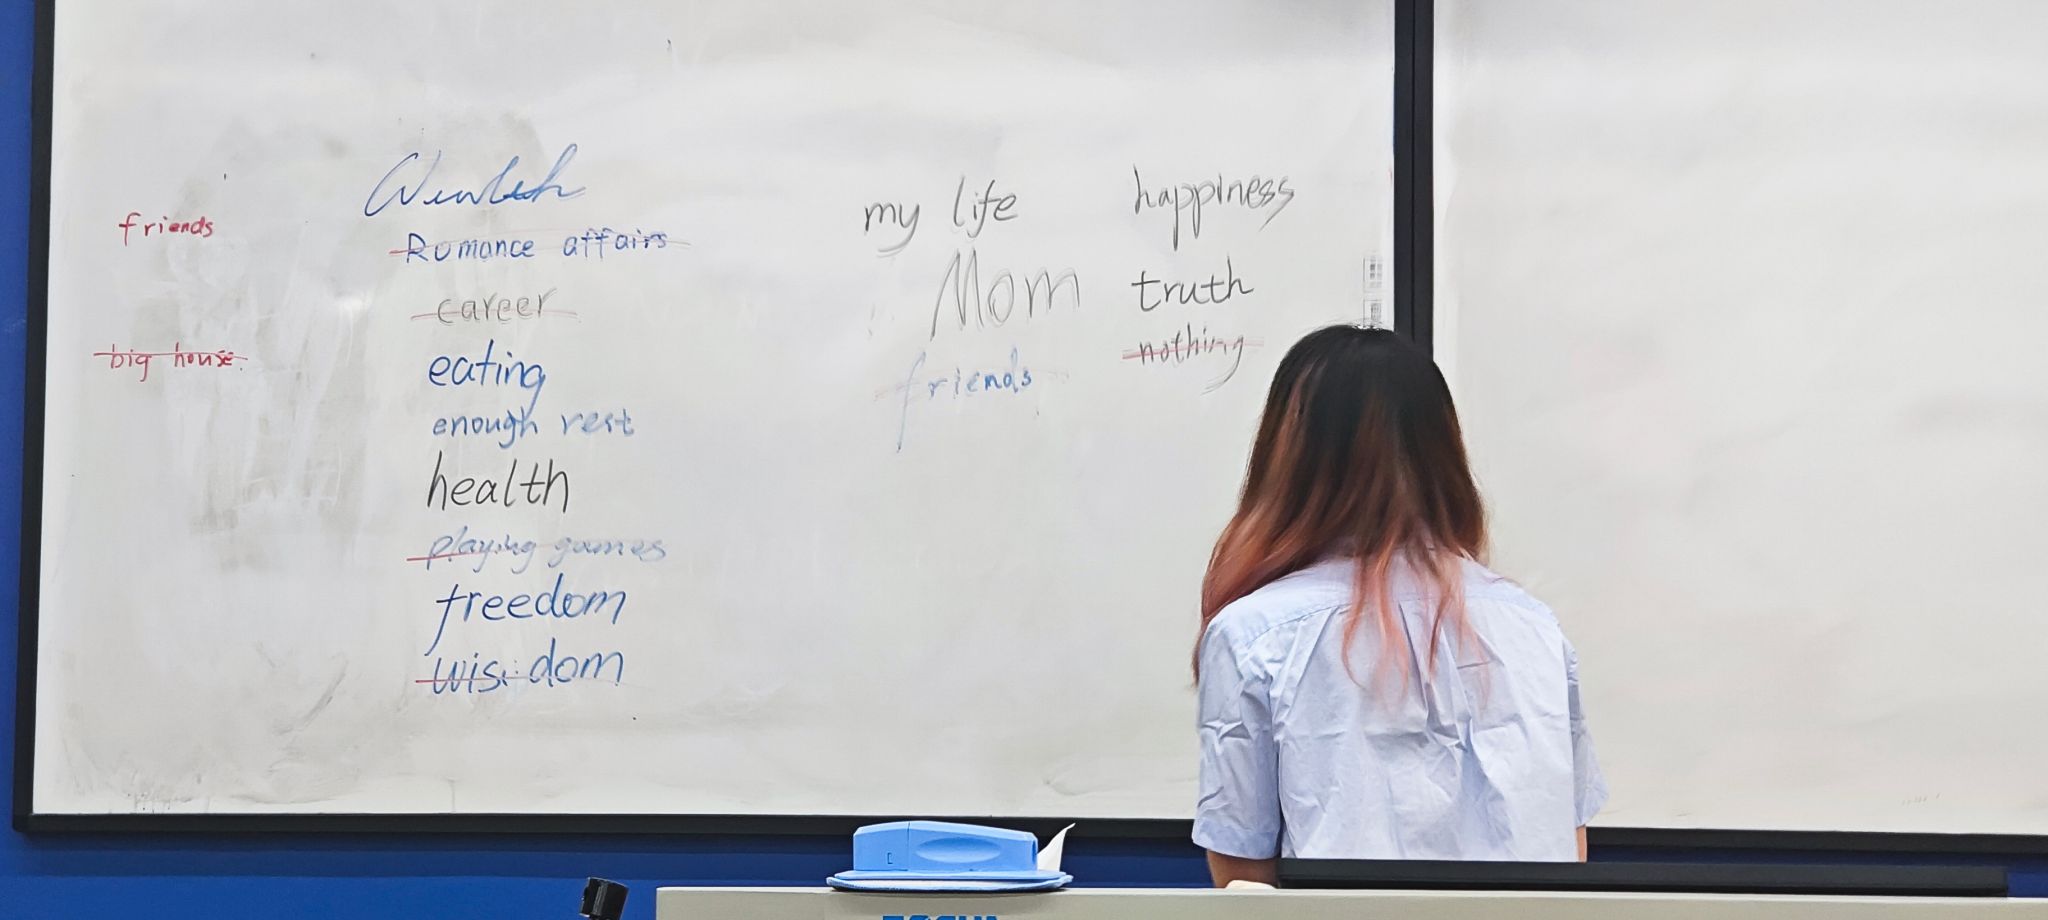 friends
big house.
Romance affairs
career
eating
enough rest
health
playing games
freedom
wisdom
my life
Mom
friends
happiness
truth
nothing